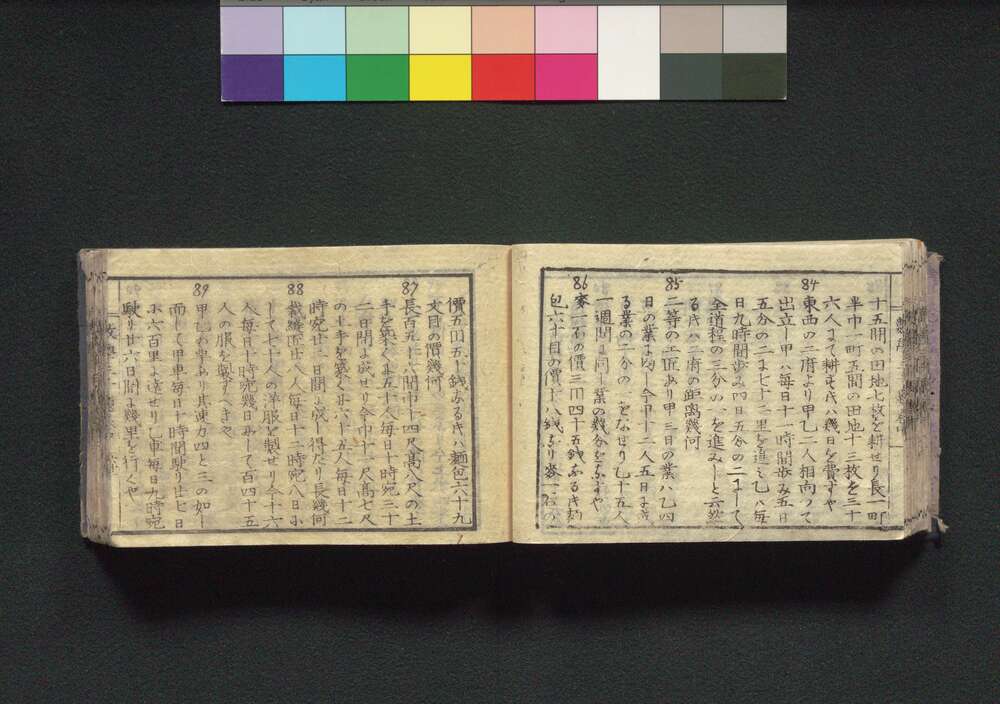 十五間の田地七枚を耕せり長一町
半巾一町五間の田地十三枚を三十
六人にて耕すときハ幾日を費すや
84
東西の二府より甲乙二人相向ひて
出立し甲ハ毎日十一時間歩み五日
五分の二にて七十二里を進ミ乙ハ毎
日九時間歩み四日五分の二にして
全道程の三分の一を進みしと云然
るときハ二府の距離幾何
85
二等の工匠あり甲三日の業ハ乙四
日の業に均し今甲十二人五日に或
る業の二分の一をなせり乙十五人
一週間に同し業の幾分をなすや
86
麥一石の價三円四十五銭なるとき麪
包六十目の價十八銭なり麥一石の
價五円五十銭なるときハ麺包六十九
文目の價幾何
87
長百五十六間巾十四尺高八尺の土
手を築くに五十人毎日十時宛二十
二日間に成せり今巾十二尺高七尺
の土手を築くに六十五人毎日十二
時宛廿二日間に成し得たり長幾何
88
裁縫匠廿八人毎日十二時宛八日に
して七十人の洋服を製せり今十六
人毎日十時宛幾日にして百四十五
人の服を製すへきや
89
甲乙の車あり其速力四と三の如し
而して甲車毎日十時間駛り廿七日
に六百里を達せり乙車毎日九時宛
駛り廿六日間に幾里を行くや